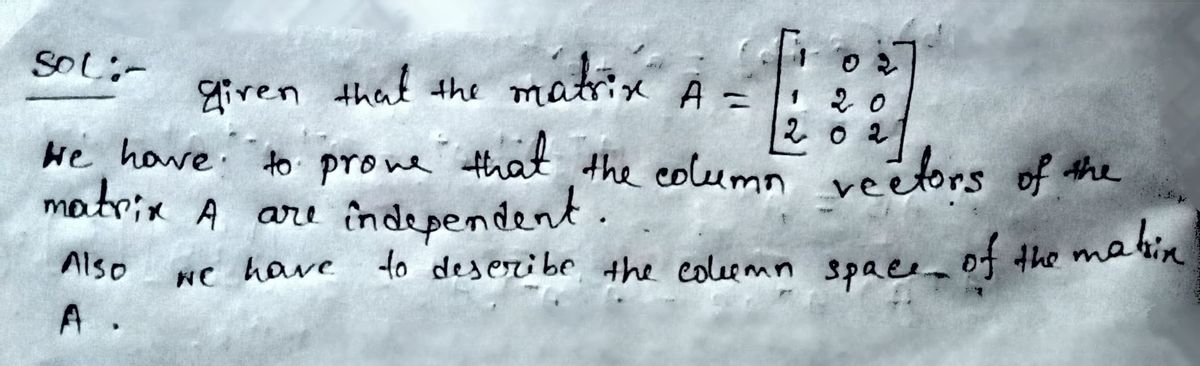 SOL:- Given that the matrix A = [1 0 2
1 2 0
2 0 2]
We have to prove that the column vectors of the
matrix A are independent.
Also we have to describe the column space of the matrix
A.